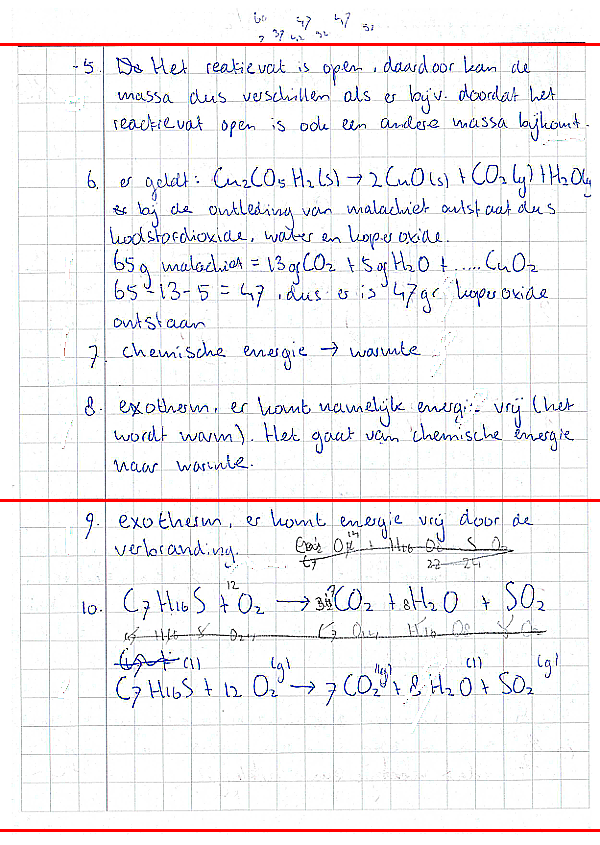 60 47 47
7 37 42 52 52
5. Het reatievat is open, daardoor kan de
massa dus verschillen als er bijv. doordat het
reactievat open is ook een andere massa bijkomt.
6. er geldt: Cu2CO5H2(s) → 2CuO(s) + CO2(g) + H2O(g)
bij de ontleding van malachiet ontstaat dus
koolstofdioxide, water en koperoxide.
65g malachiet = 13gCO2 + 5gH2O + ..... CuO2
65-13-5 = 47, dus er is 47gr koperoxide
ontstaan
7. chemische energie → warmte
8. exotherm, er komt namelijk energie vrij (het
wordt warm). Het gaat van chemische energie
naar warmte.
9. exotherm, er komt energie vrij door de
verbranding.
10. C7H16S + 12 O2 → 7CO2 + 8H2O + SO2
(l) (g) (g) (l) (g)
C7H16S + 12 O2 → 7 CO2 + 8 H2O + SO2